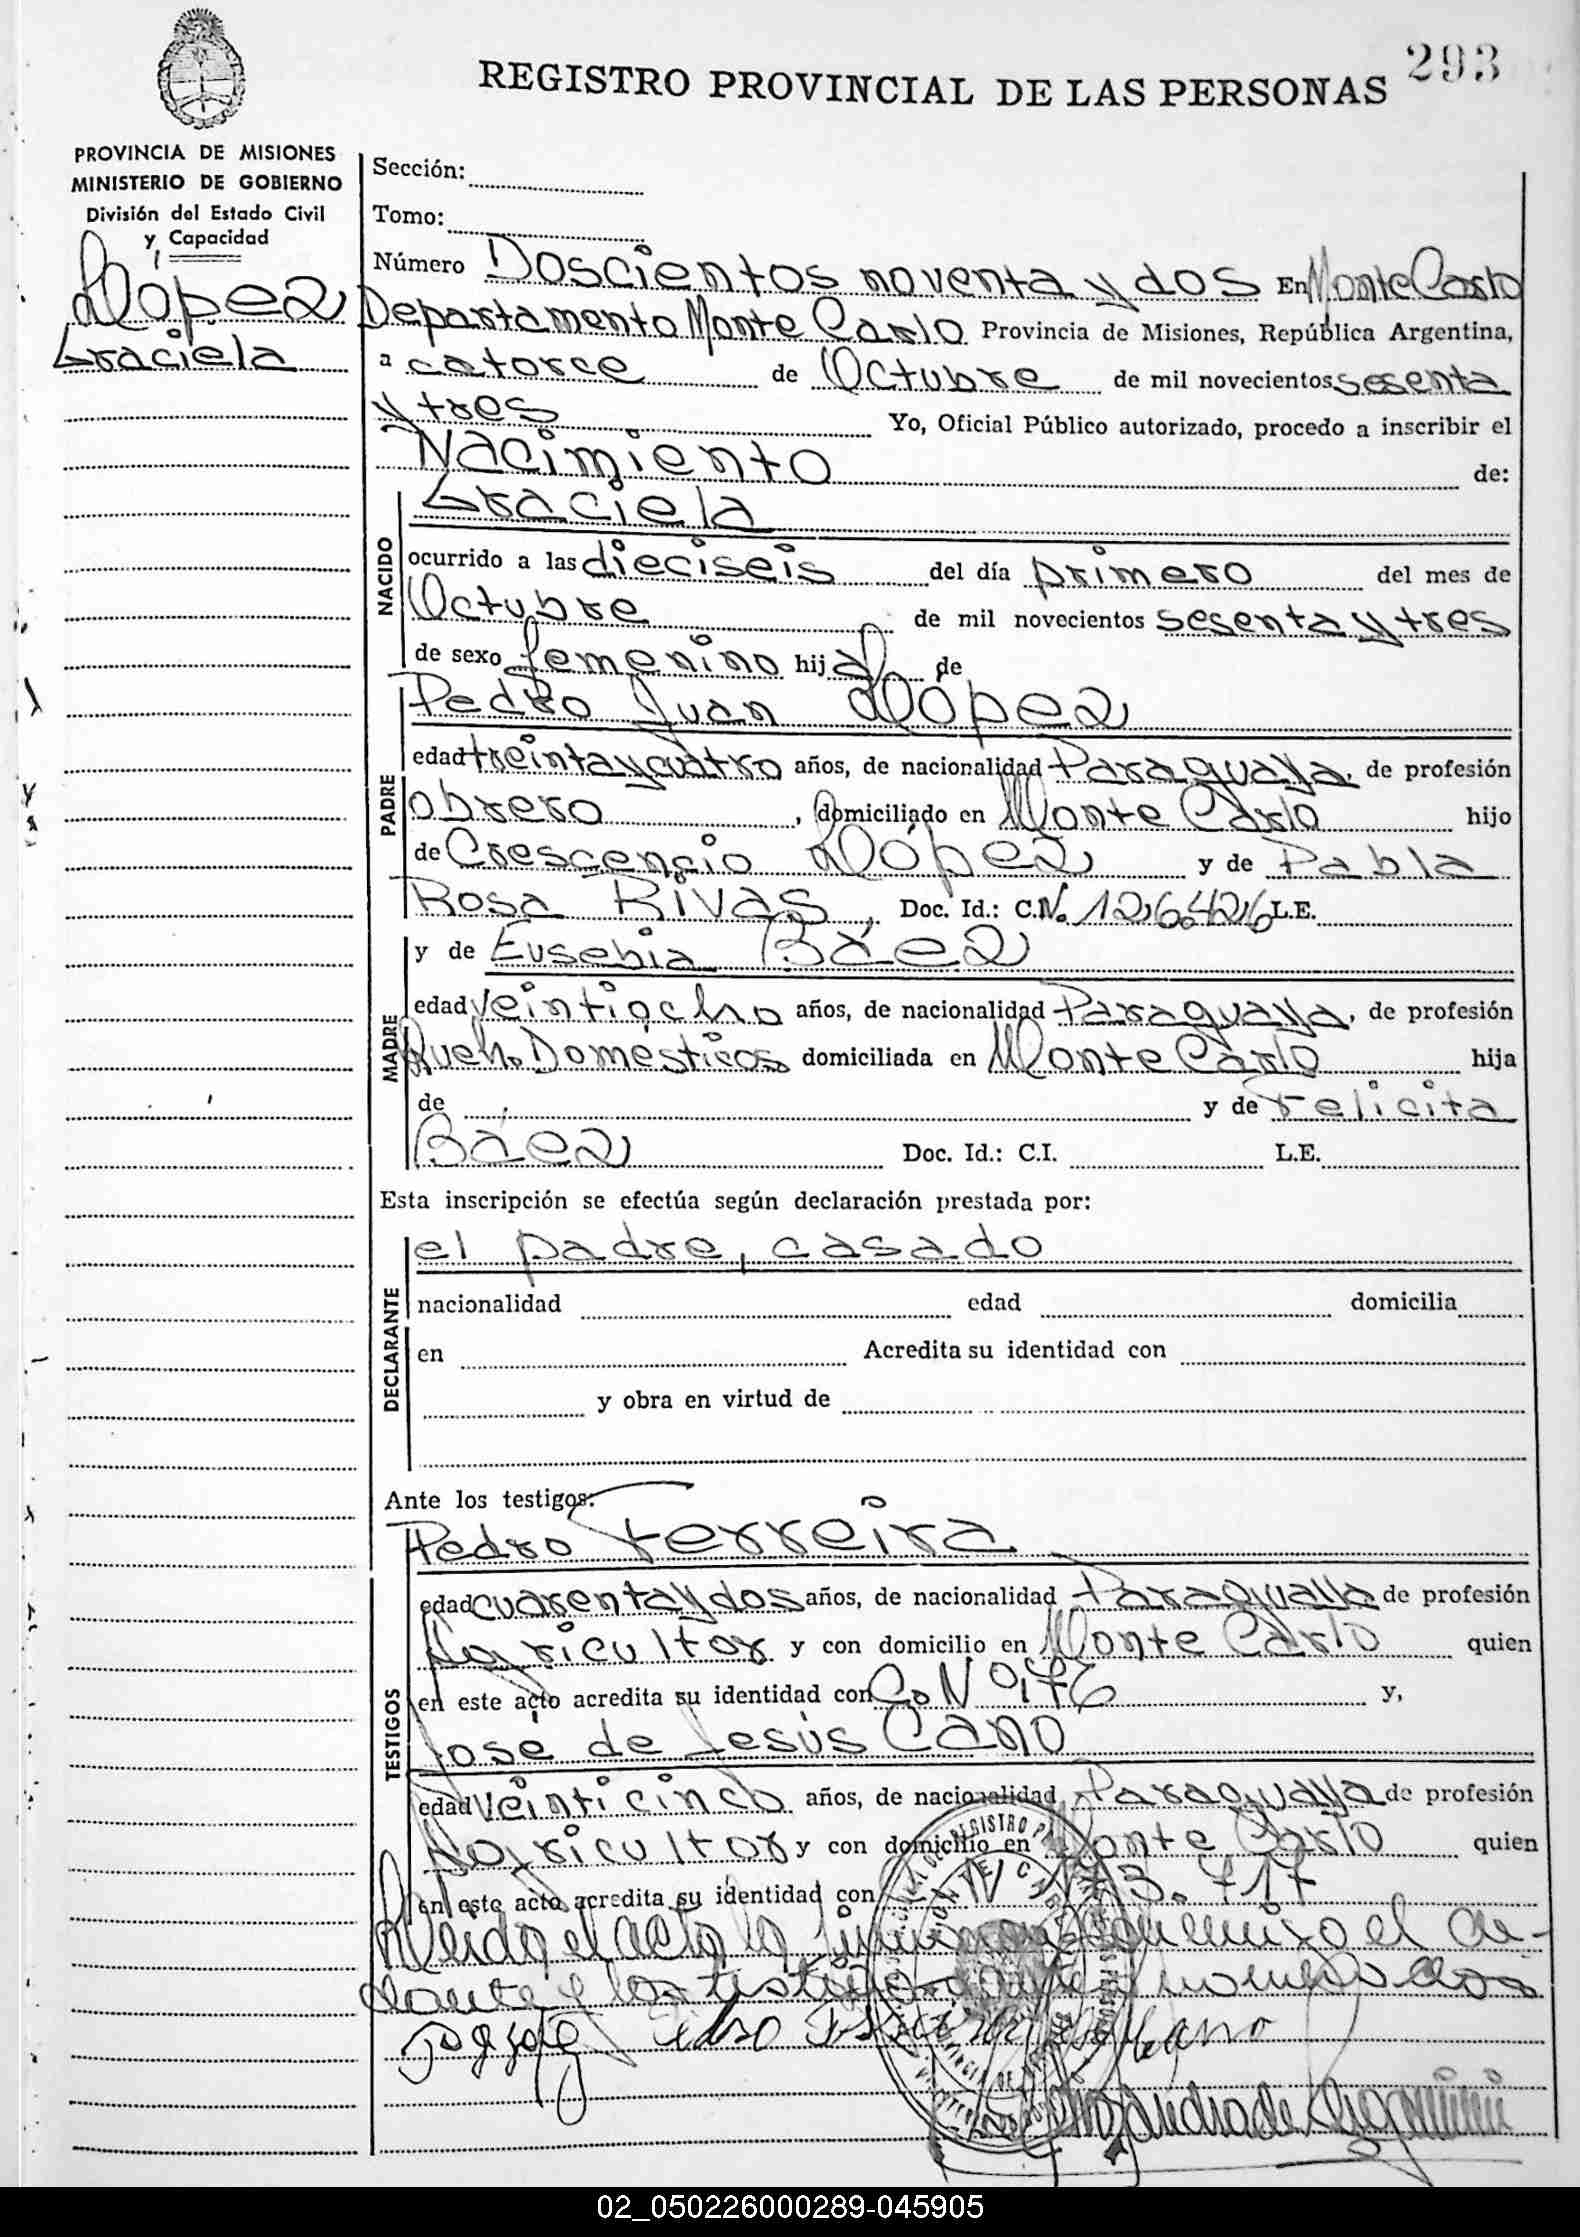 293
REGISTRO PROVINCIAL DE LAS PERSONAS
PROVINCIA DE MISIONES
MINISTERIO DE GOBIERNO
División del Estado Civil
y Capacidad
López
Graciela
Sección:
Tomo:
Número Doscientos noventa y dos En Monte Carlo
Departamento Monte Carlo Provincia de Misiones, República Argentina,
a catorce de Octubre de mil novecientos sesenta
y tres Yo, Oficial Público autorizado, procedo a inscribir el
Nacimiento de:
NACIDO
Graciela
ocurrido a las dieciseis del día primero del mes de
Octubre de mil novecientos sesenta y tres
de sexo femenino hija de
PADRE
Pedro Juan López
edad treinta y cuatro años, de nacionalidad Paraguaya, de profesión
obrero, domiciliado en Monte Carlo hijo
de Crescencio López y de Pabla
Rosa Rivas, Doc. Id.: C.N. 126.426 L.E.
MADRE
y de Eusebia Báez
edad veintiocho años, de nacionalidad Paraguaya, de profesión
Queh. Domésticos domiciliada en Monte Carlo hija
de y de Felicita
Báez Doc. Id.: C.I. L.E.
Esta inscripción se efectúa según declaración prestada por:
DECLARANTE
el padre, casado
nacionalidad edad domicilia
en Acredita su identidad con
y obra en virtud de
Ante los testigos:
TESTIGOS
Pedro Ferreira
edad cuarenta y dos años, de nacionalidad Paraguaya de profesión
Agricultor y con domicilio en Monte Carlo quien
en este acto acredita su identidad con C. Nº 176 y,
José de Jesús Cano
edad veinticinco años, de nacionalidad Paraguaya de profesión
Agricultor y con domicilio en Monte Carlo quien
en este acto acredita su identidad con
Leida el acta la firman conmigo el de-
clarante y los testigos nombrados
Cano
02_050226000289-045905